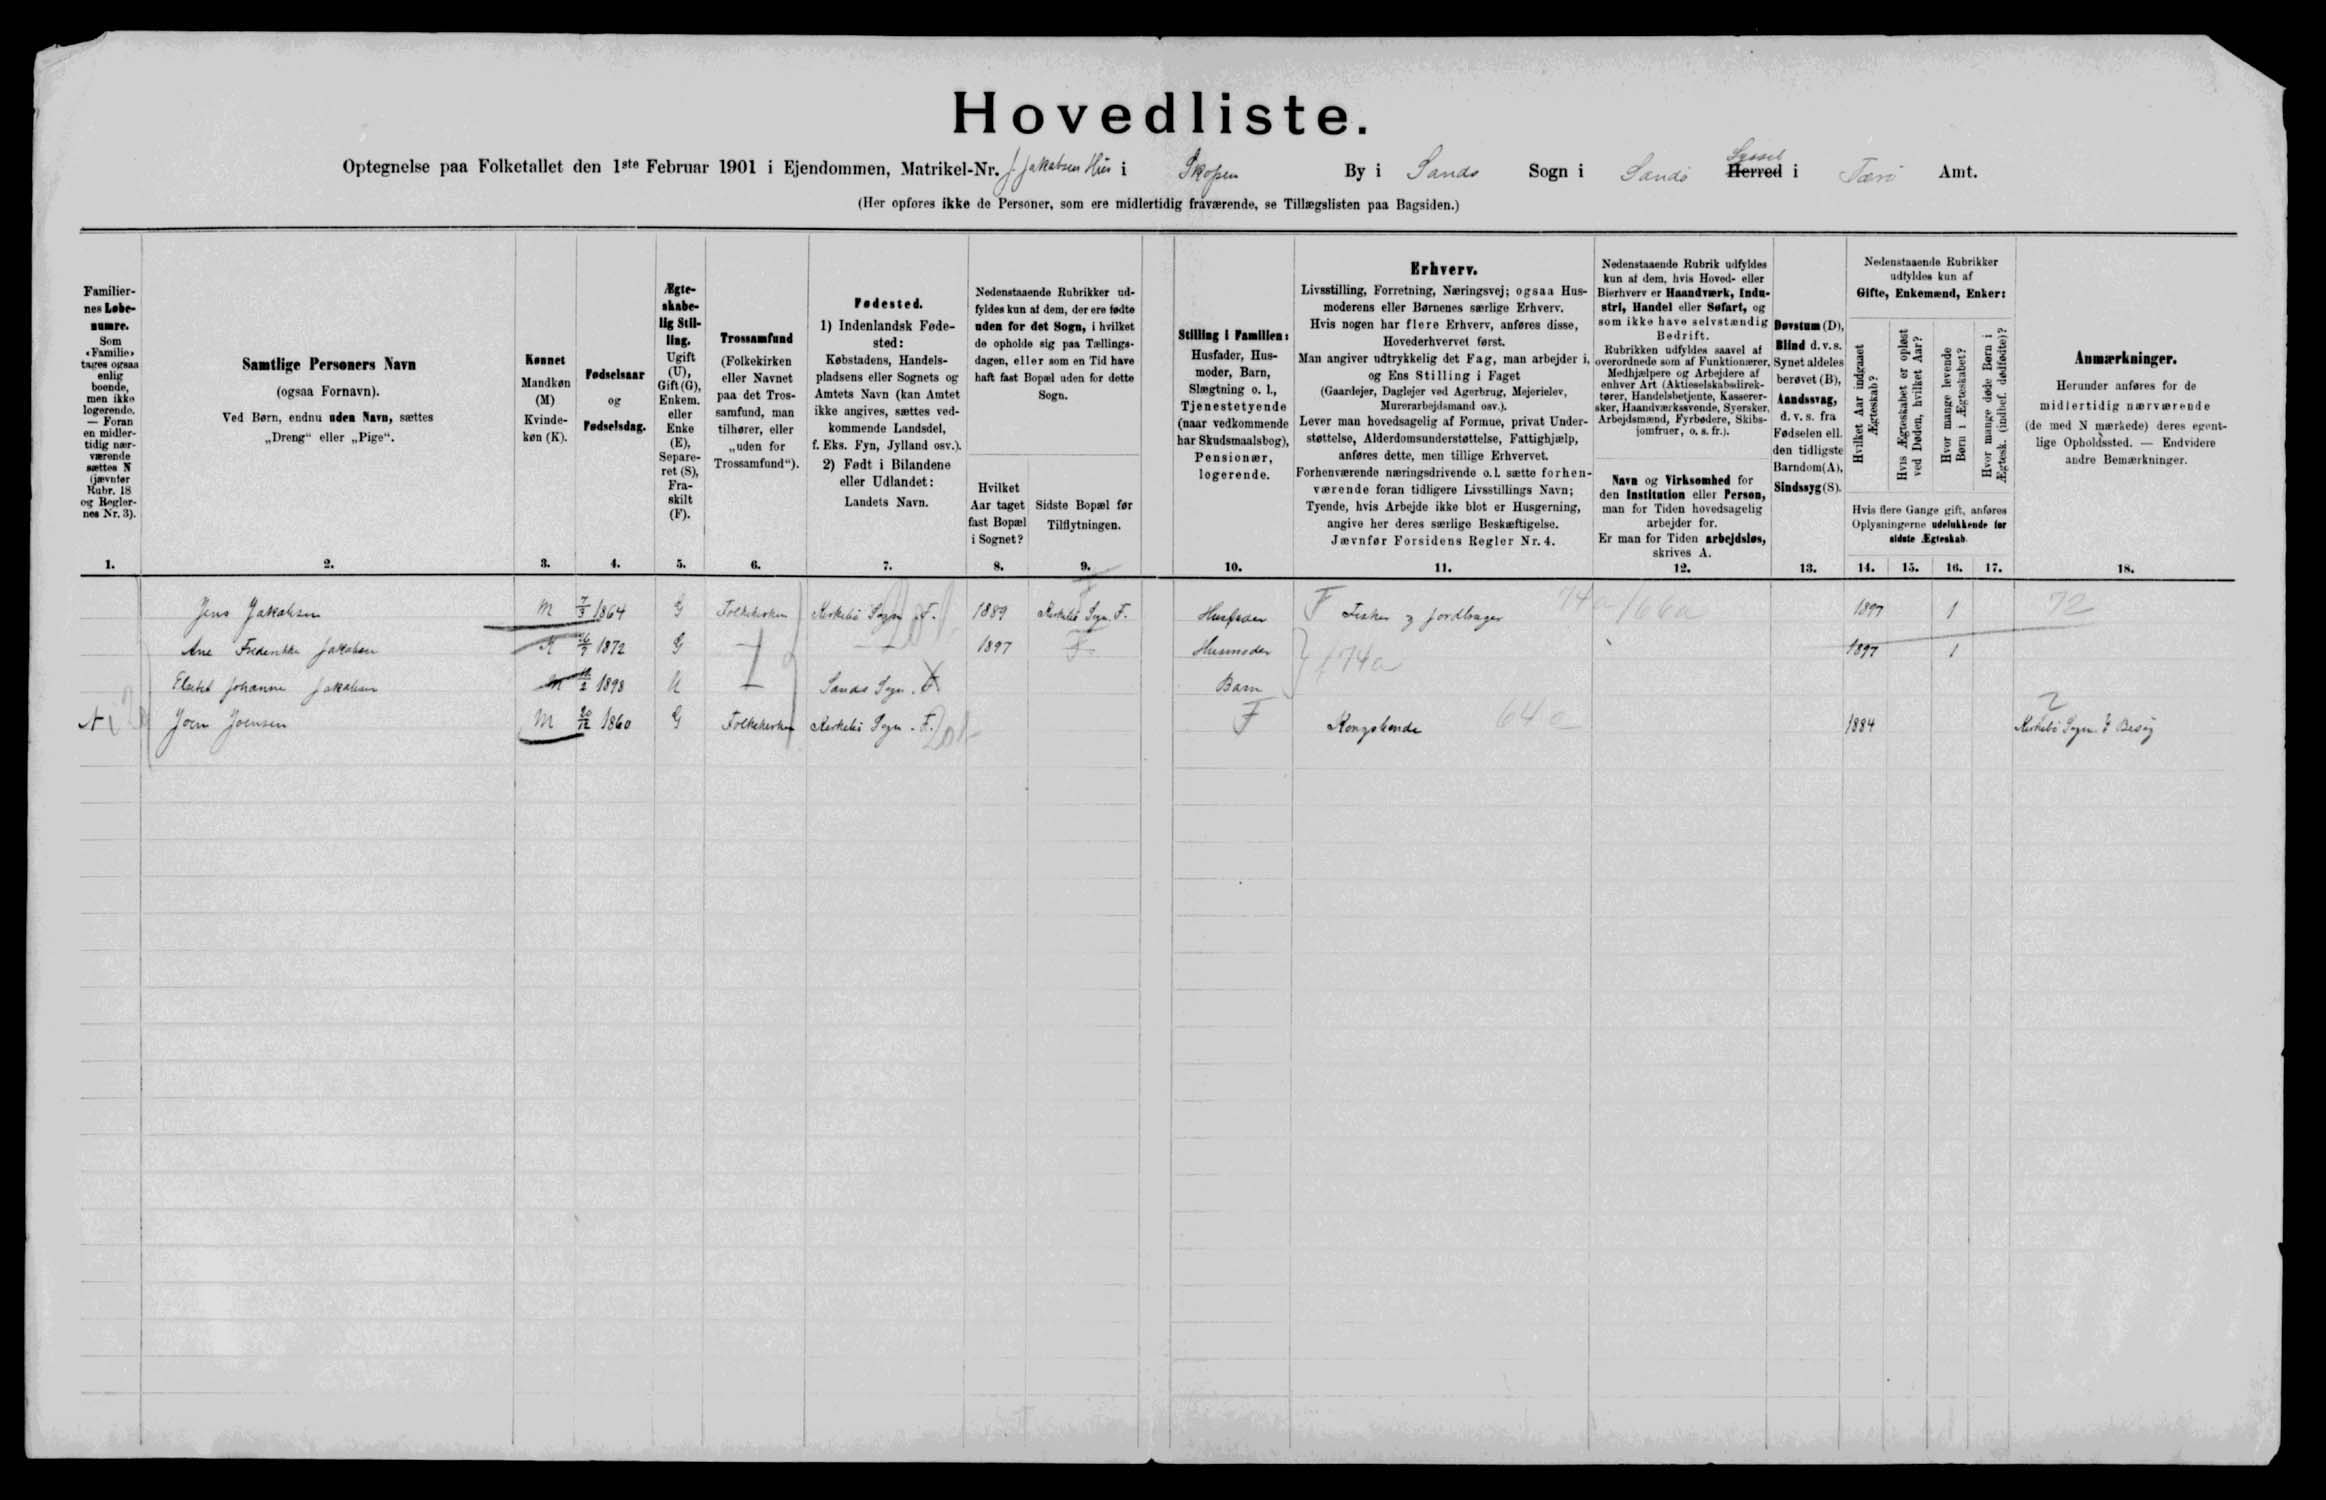 Hovedliste.
Optegnelse paa Folketallet den 1ste Februar 1901 i Ejendommen, Matrikel-Nr. J. Jakobsens Hus i Skopen By i Sands Sogn i Sandö Herred Syssel i Færö Amt.
(Her opføres ikke de Personer, som ere midlertidig fraværende, se Tillægslisten paa Bagsiden.)
Familier-
nes Løbe-
numre.
Som
«Familie»
tages ogsaa
enlig
boende,
men ikke
logerende.
— Foran
en midler-
tidig nær-
værende
sættes N
(jævnfør
Rubr. 18
og Regler-
nes Nr. 3).
1.
Samtlige Personers Navn
(ogsaa Fornavn).
Ved Børn, endnu uden Navn, sættes
„Dreng“ eller „Pige“.
2.
Kønnet
Mandkøn
(M)
Kvinde-
køn (K).
3.
Fødselsaar
og
Fødselsdag.
4.
Ægte-
skabe-
lig Stil-
ling.
Ugift
(U),
Gift (G),
Enkem.
eller
Enke
(E),
Separe-
ret (S),
Fra-
skilt
(F).
5.
Trossamfund
(Folkekirken
eller Navnet
paa det Tros-
samfund, man
tilhører, eller
„uden for
Trossamfund“).
6.
Fødested.
1) Indenlandsk Føde-
sted:
Købstadens, Handels-
pladsens eller Sognets og
Amtets Navn (kan Amtet
ikke angives, sættes ved-
kommende Landsdel,
f. Eks. Fyn, Jylland osv.).
2) Født i Bilandene
eller Udlandet:
Landets Navn.
7.
Nedenstaaende Rubrikker ud-
fyldes kun af dem, der ere fødte
uden for det Sogn, i hvilket
de opholde sig paa Tællings-
dagen, eller som en Tid have
haft fast Bopæl uden for dette
Sogn.
Hvilket
Aar taget
fast Bopæl
i Sognet?
8.
Sidste Bopæl før
Tilflytningen.
9.
Stilling i Familien:
Husfader, Hus-
moder, Barn,
Slægtning o. l.,
Tjenestetyende
(naar vedkommende
har Skudsmaalsbog),
Pensionær,
logerende.
10.
Erhverv.
Livsstilling, Forretning, Næringsvej; ogsaa Hus-
moderens eller Børnenes særlige Erhverv.
Hvis nogen har flere Erhverv, anføres disse,
Hovederhvervet først.
Man angiver udtrykkelig det Fag, man arbejder i,
og Ens Stilling i Faget
(Gaardejer, Daglejer ved Agerbrug, Mejerielev,
Murerarbejdsmand osv.).
Lever man hovedsagelig af Formue, privat Under-
støttelse, Alderdomsunderstøttelse, Fattighjælp,
anføres dette, men tillige Erhvervet.
Forhenværende næringsdrivende o. l. sætte forhen-
værende foran tidligere Livsstillings Navn;
Tyende, hvis Arbejde ikke blot er Husgerning,
angive her deres særlige Beskæftigelse.
Jævnfør Forsidens Regler Nr. 4.
11.
Nedenstaaende Rubrik udfyldes
kun af dem, hvis Hoved- eller
Bierhverv er Haandværk, Indu-
stri, Handel eller Søfart, og
som ikke have selvstændig
Bedrift.
Rubrikken udfyldes saavel af
overordnede som af Funktionærer,
Medhjælpere og Arbejdere af
enhver Art (Aktieselskabsdirek-
tører, Handelsbetjente, Kasserer-
sker, Haandværkssvende, Syersker,
Arbejdsmænd, Fyrbødere, Skibs-
jomfruer, o. s. fr.).
Navn og Virksomhed for
den Institution eller Person,
man for Tiden hovedsagelig
arbejder for.
Er man for Tiden arbejdsløs,
skrives A.
12.
Døvstum (D),
Blind d. v. s.
Synet aldeles
berøvet (B),
Aandssvag,
d. v. s. fra
Fødselen ell.
den tidligste
Barndom (A),
Sindssyg (S).
13.
Nedenstaaende Rubrikker
udfyldes kun af
Gifte, Enkemænd, Enker:
Hvilket Aar indgaaet
Ægteskab?
Hvis Ægteskabet er opløst
ved Døden, hvilket Aar?
Hvor mange levende
Børn i Ægteskabet?
Hvor mange døde Børn i
Ægtesk. (indbef. dødfødte)?
Hvis flere Gange gift, anføres
Oplysningerne udelukkende for
sidste Ægteskab.
14. 15. 16. 17.
Anmærkninger.
Herunder anføres for de
midlertidig nærværende
(de med N mærkede) deres egent-
lige Opholdssted. — Endvidere
andre Bemærkninger.
18.
Jens Jakobsen M 7/3 1864 G Folkekirken Kirkebö Sogn F. 1889 Kirkebö Sogn F. Husfader F Fisker og Jordbruger 74a 166a 1897 1 72
Ane Frederikke Jakobsen K 1872 G 1897 Husmoder 174a 1897 1
Elsebet Johanne Jakobsen 1898 U Sands Sogn. F Barn
N Joen Joensen M 20/12 1860 G Folkekirken Kirkebö Sogn. F. 201 F Kongsbonde 64 1884 Kirkebö Sogn. Besög